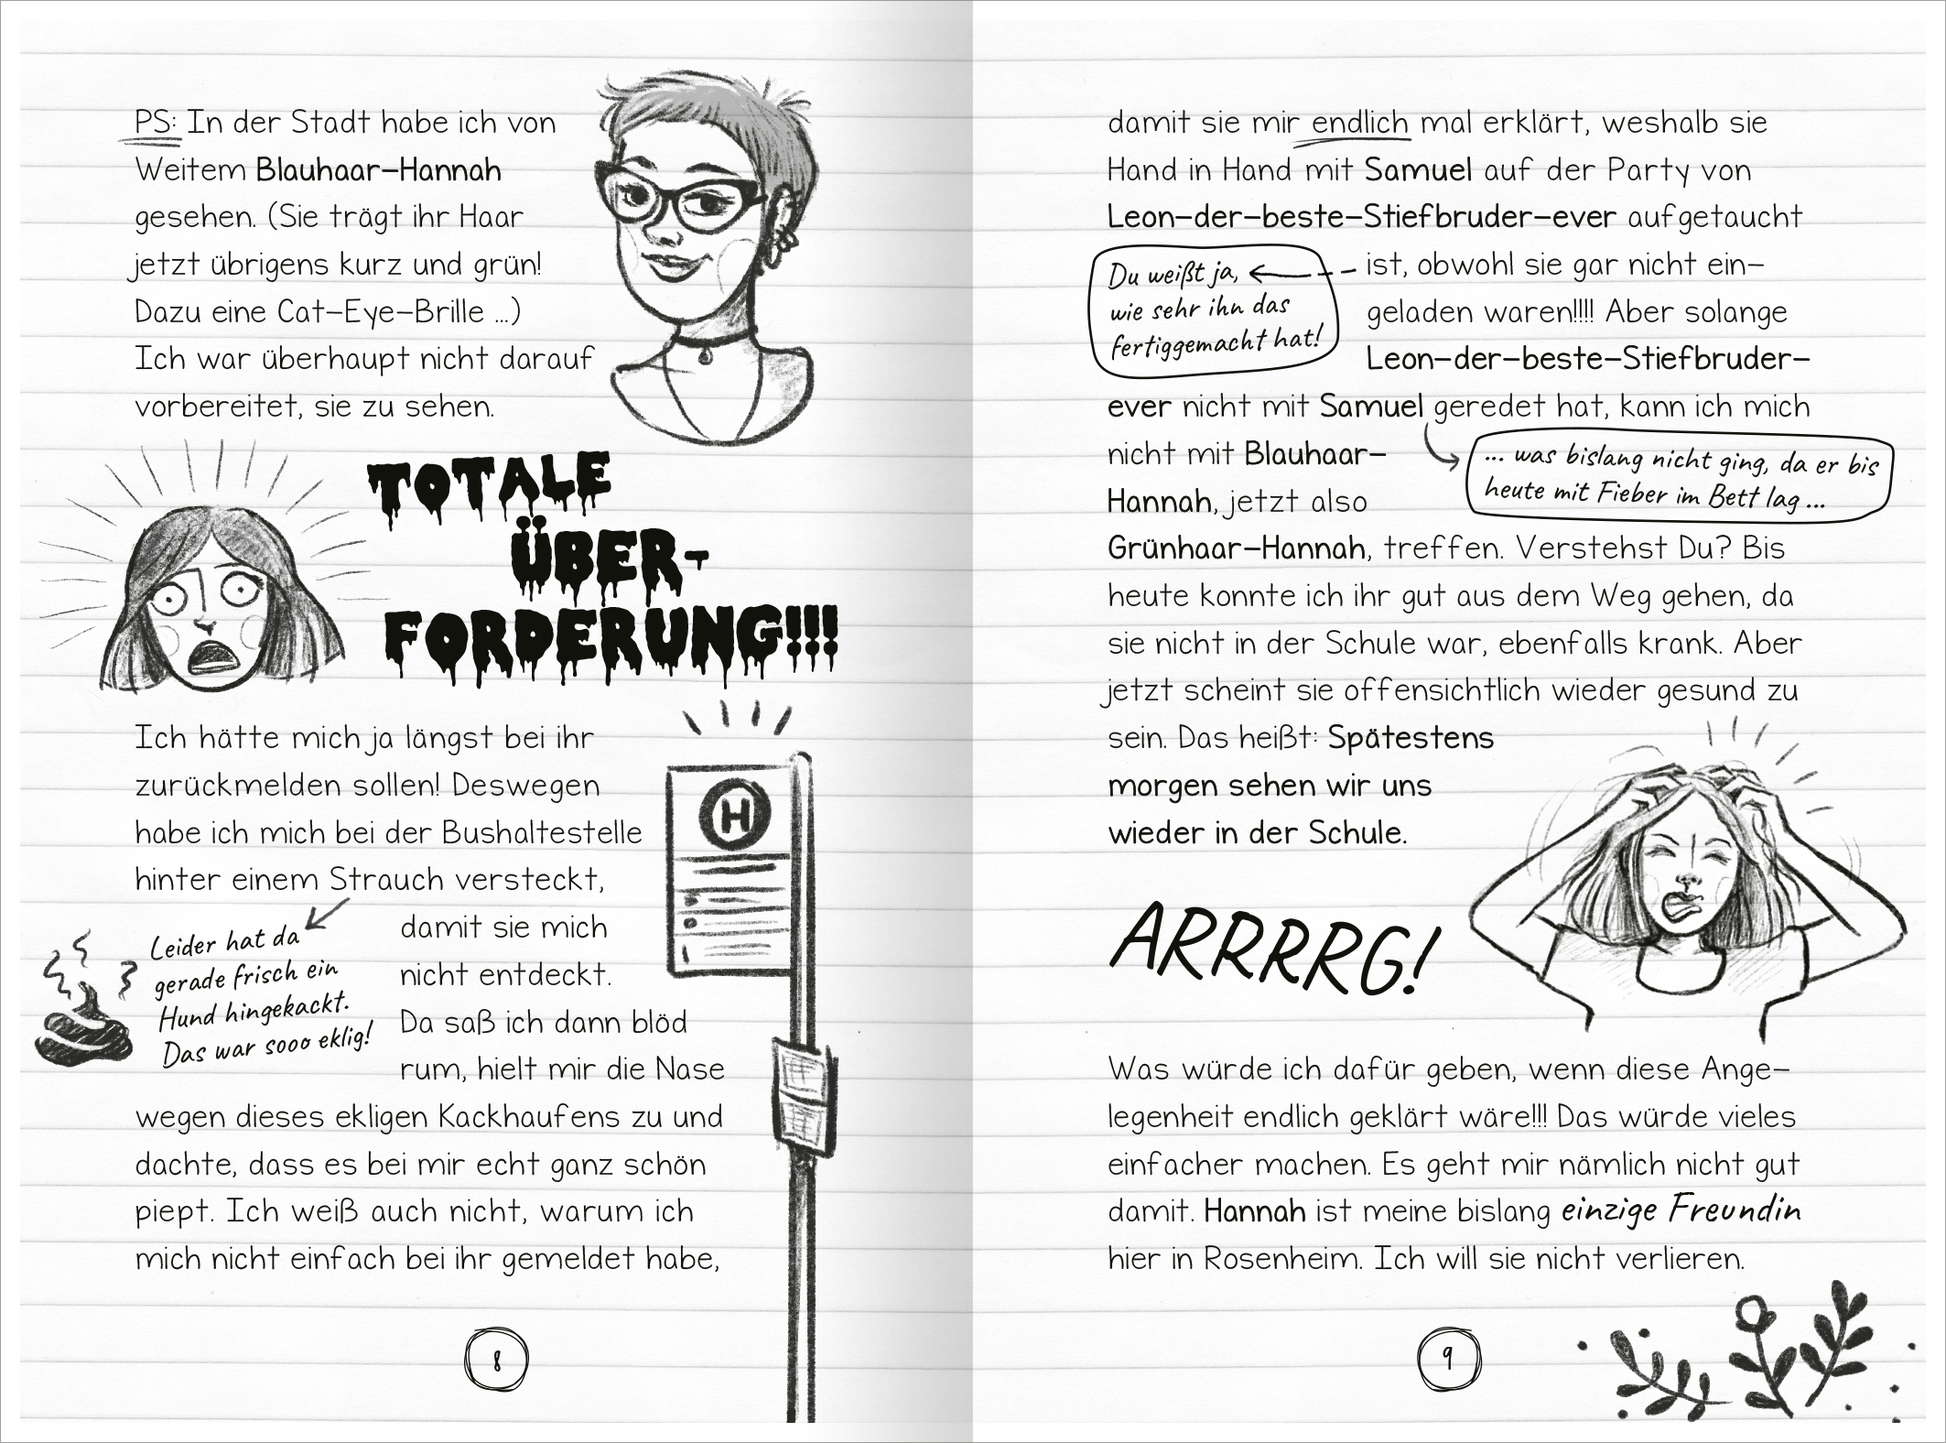 PS: In der Stadt habe ich von
Weitem Blauhaar-Hannah
gesehen. (Sie trägt ihr Haar
jetzt übrigens kurz und grün!
Dazu eine Cat-Eye-Brille ...)
Ich war überhaupt nicht darauf
vorbereitet, sie zu sehen.
TOTALE
ÜBER-
FORDERUNG!!!
Ich hätte mich ja längst bei ihr
zurückmelden sollen! Deswegen
habe ich mich bei der Bushaltestelle
hinter einem Strauch versteckt,
Leider hat da
gerade frisch ein
Hund hingekackt.
Das war sooo eklig!
damit sie mich
nicht entdeckt.
Da saß ich dann blöd
rum, hielt mir die Nase
wegen dieses ekligen Kackhaufens zu und
dachte, dass es bei mir echt ganz schön
piept. Ich weiß auch nicht, warum ich
mich nicht einfach bei ihr gemeldet habe,
H
8
damit sie mir endlich mal erklärt, weshalb sie
Hand in Hand mit Samuel auf der Party von
Leon-der-beste-Stiefbruder-ever aufgetaucht
ist, obwohl sie gar nicht ein-
geladen waren!!!! Aber solange
Du weißt ja,
wie sehr ihn das
fertiggemacht hat!
Leon-der-beste-Stiefbruder-
ever nicht mit Samuel geredet hat, kann ich mich
... was bislang nicht ging, da er bis
heute mit Fieber im Bett lag ...
nicht mit Blauhaar-
Hannah, jetzt also
Grünhaar-Hannah, treffen. Verstehst Du? Bis
heute konnte ich ihr gut aus dem Weg gehen, da
sie nicht in der Schule war, ebenfalls krank. Aber
jetzt scheint sie offensichtlich wieder gesund zu
sein. Das heißt: Spätestens
morgen sehen wir uns
wieder in der Schule.
ARRRRG!
Was würde ich dafür geben, wenn diese Ange-
legenheit endlich geklärt wäre!!! Das würde vieles
einfacher machen. Es geht mir nämlich nicht gut
damit. Hannah ist meine bislang einzige Freundin
hier in Rosenheim. Ich will sie nicht verlieren.
9